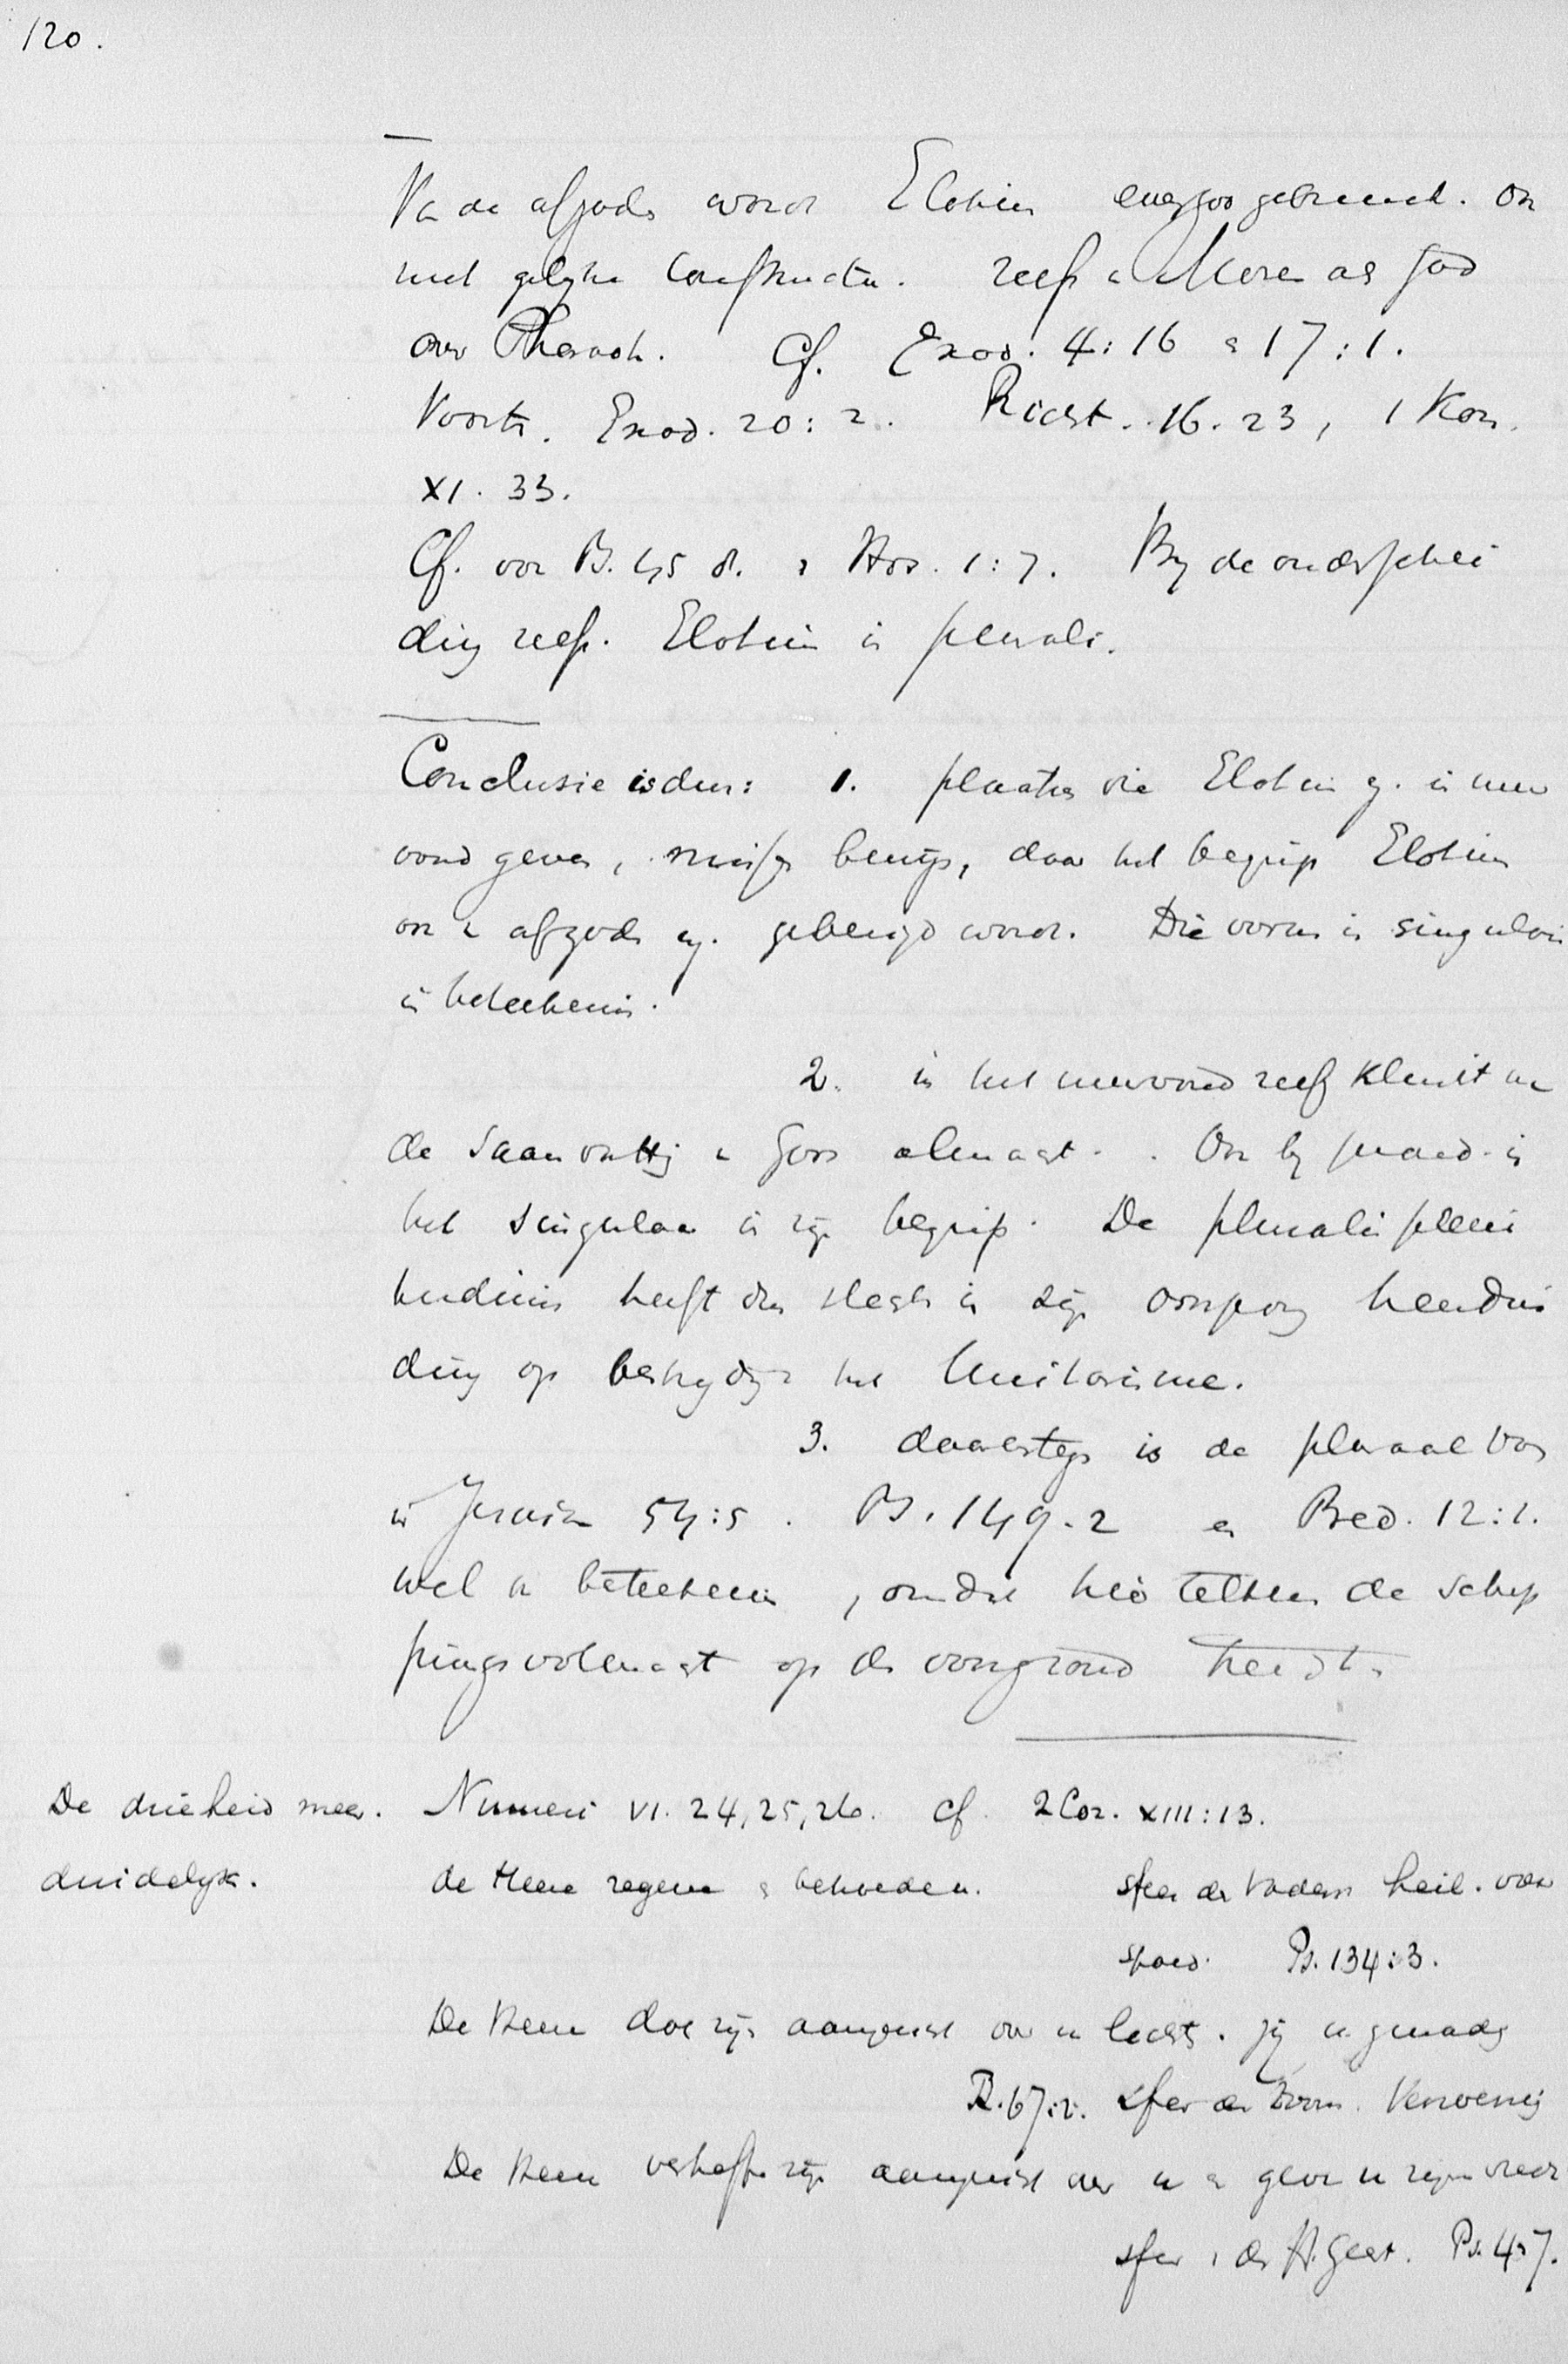 120.
Van de afgoden wordt Elohim evenzoo gebruikt. Ook
met gelijke constructie. zelfs v Mozes als God
over Pharaoh. Cf. Exod. 4:16 & 17:1.
Voorts. Exod. 20:2. Richt. 16.23, 1 Kon.
XI. 33.
Cf. voor Ps. 45 8. & Hos. 1:7. By de onderschei
ding zelfs. Elohim in plurali.
Conclusie is dus: 1. plaatsen die Elohim in meer
voud geven, bewijs, daar het begrip Elohim
ook v afgoden gebezigd wordt. Die vorm is singulair
in beteekenis.
2. in het meervoud zelf
de saamvatting v Gods almacht. Ook is
het singulaar in zijn begrip. De pluralis pleni
tudinis heeft dus slechts in zijn oorsprong heendui
ding op bestryding v het Unitarisme.
3. daarentegen is de pluraal vorm
in Jesaia 54:5. Ps. 149.2 en Pred. 12:1.
wel v beteekenis, omdat hier telkens de schep
pingsvolmacht op den voorgrond treedt.
De drieheid meer. Numeri VI. 24,25,26. cf. 2 Cor. XIII:13.
duidelyk. de Heere zegene & behoede u. sfeer des Vaders heil. voor
spoed. Ps. 134:3.
De Heere doe zijn aangezicht over u lichten. zij u genadig
Ps. 67:2. sfeer des Zoons. Verzoening
De Heere verheffe zijn aangezicht over u & geve u zijnen vrede
sfeer v den H. Geest. Ps. 4:7.